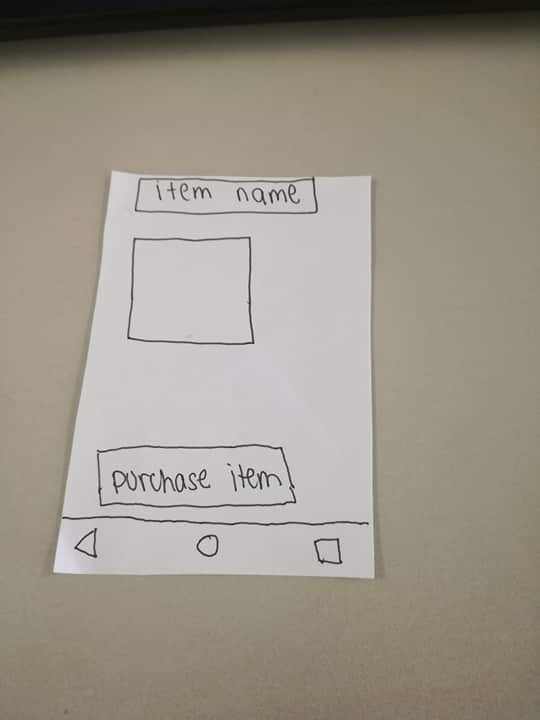 item name
purchase item